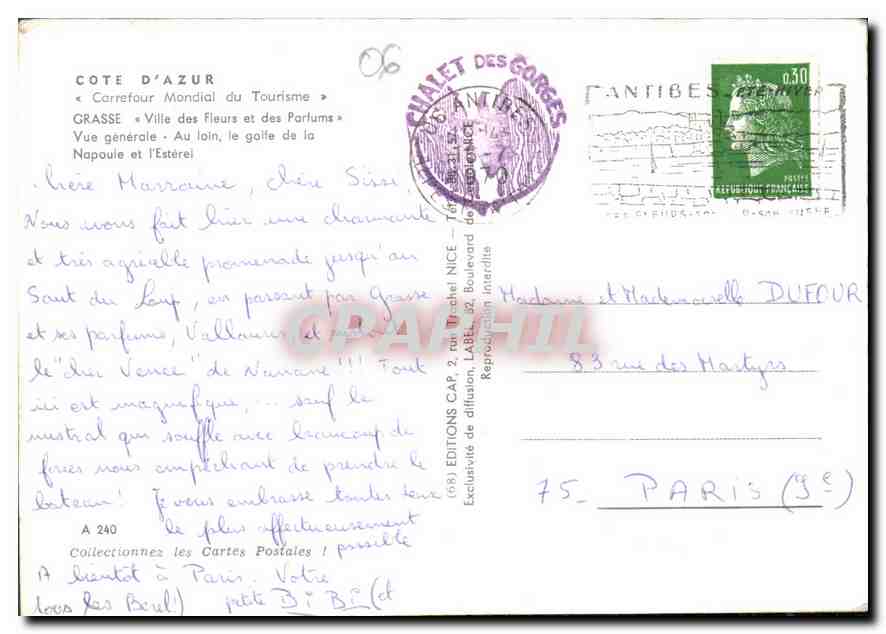 06
COTE D'AZUR
« Carrefour Mondial du Tourisme »
GRASSE « Ville des Fleurs et des Parfums »
Vue générale - Au loin, le golfe de la
Napoule et l'Estérel
CHALET DES GORGES
06 ANTIBES
70
ANTIBES
0,30
POSTES
REPUBLIQUE FRANÇAISE
chère Marraine, chère Sissi
Nous avons fait hier une charmante
et très agréable promenade jusqu'au
Saut du Loup, en passant par Grasse
et ses parfums, Vallauris, et
le "cher Vence" de Nanane!!! Tout
ici est magnifique, ... sauf le
mistral qui souffle avec beaucoup de
forces nous empêchant de prendre le
bateau! Je vous embrasse toutes deux
le plus affectueusement
possible
A bientôt à Paris. Votre
petite BiBi (et
tous les Borel!)
A 240
Collectionnez les Cartes Postales !
(68) EDITIONS CAP, 2, rue Trachel NICE —
Exclusivité de diffusion, LABEL, 82, Boulevard de
Reproduction interdite
Madame et Mademoiselle DUFOUR
83 rue des Martyrs
75_ PARIS (9e)
CPAPHIL